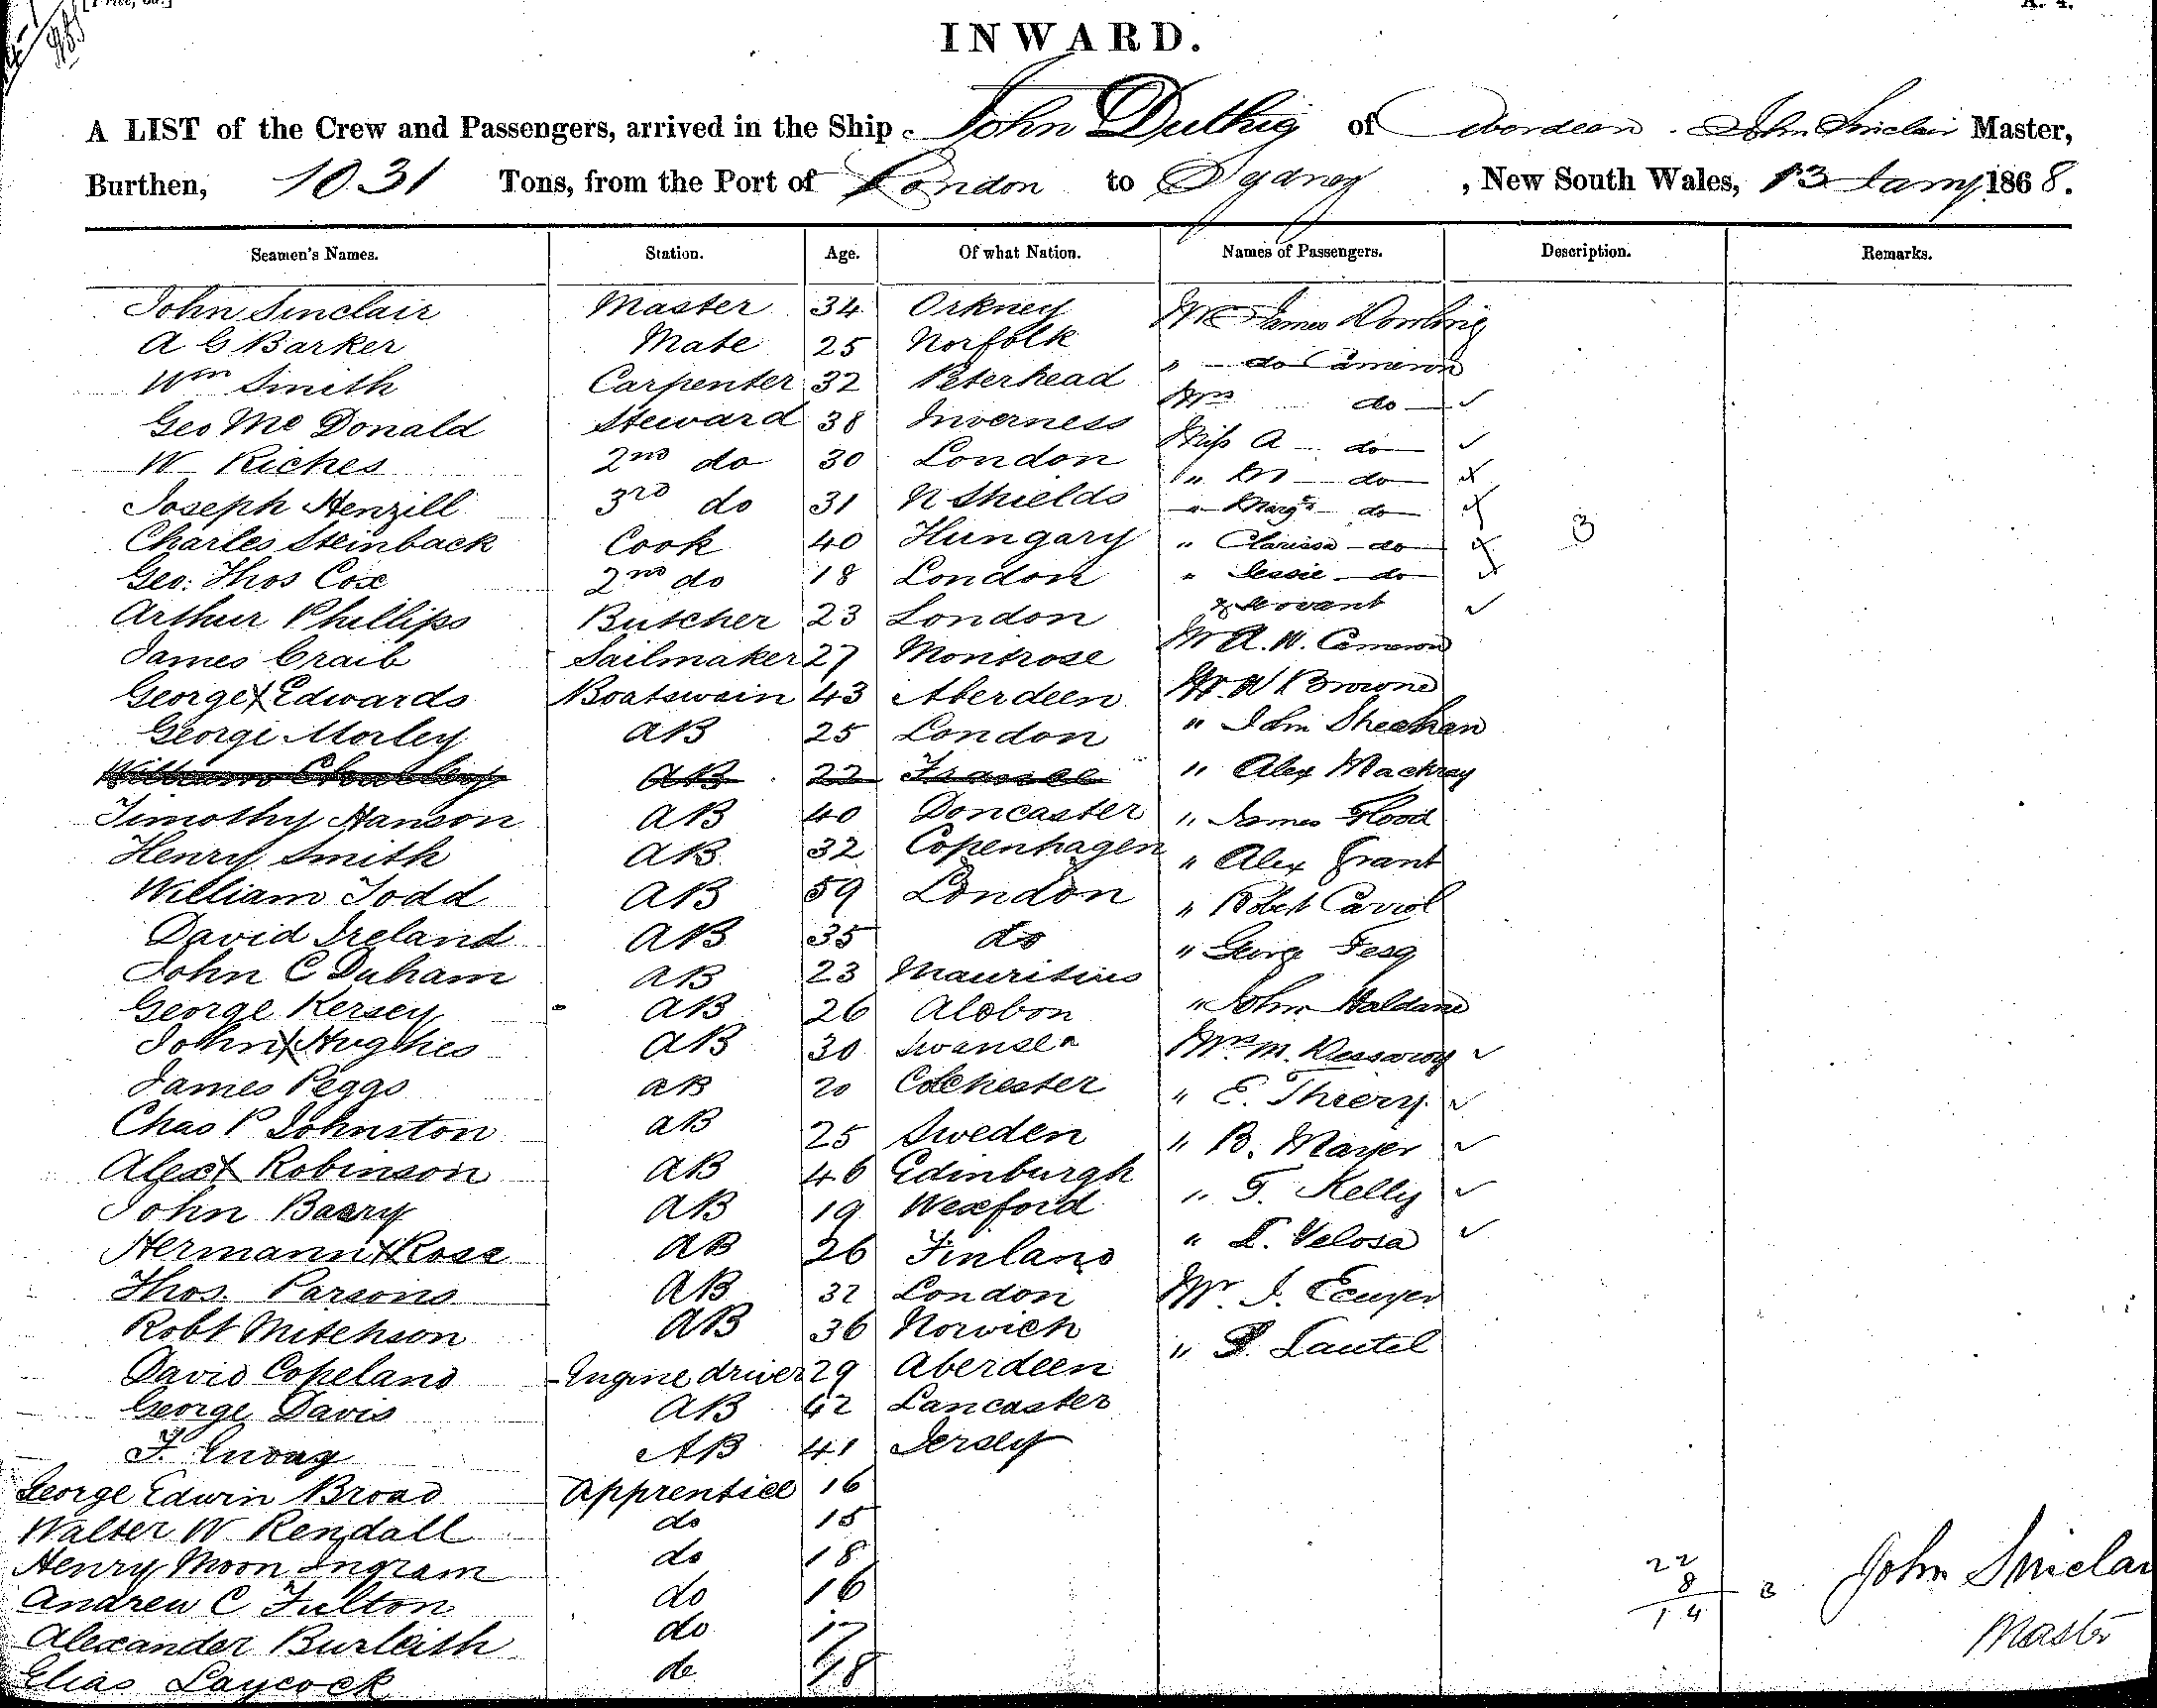 INWARD.
A LIST of the Crew and Passengers, arrived in the Ship John Duthie of Aberdeen John Sinclair Master,
Burthen, 1031 Tons, from the Port of London to Sydney, New South Wales, 13 Jany 1868.
Seamen's Names. Station. Age. Of what Nation. Names of Passengers. Description. Remarks.
John Sinclair Master 34 Orkney Mr James Dowling
A G Barker Mate 25 Norfolk " do Cameron
Wm Smith Carpenter 32 Peterhead Mrs do
Geo Mc Donald Steward 38 Inverness Miss A do
W Riches 2nd do 30 London " M do
Joseph Henzill 3rd do 31 N Shields " Margt do
Charles Steinback Cook 40 Hungary " Clarissa do 3
Geo: Thos Cox 2nd do 18 London " Jessie do
Arthur Phillips Butcher 23 London & Servant
James Craib Sailmaker 27 Montrose Mr A. W. Cameron
George X Edwards Boatswain 43 Aberdeen Mr W Browne
George Morley AB 25 London " John Sheehan
William AB 22 " Alex Mackray
Timothy Hanson AB 40 Doncaster " James Flood
Henry Smith AB 32 Copenhagen " Alex Grant
William Todd AB 59 London " Robert Carrol
David Ireland AB 35 do " George Fesq
John C Duham AB 23 Mauritius " John Haldane
George Kersey AB 26 Mrs M.
John X Hughes AB 30 Swansea " E. Thiery
James Peggs AB 20 Colchester " B. Mayer
Chas P Johnston AB 25 Sweden " F. Kelly
Alex X Robinson AB 46 Edinburgh " L. Velosa
John Barry AB 19 Wexford Mr. J. Ecuyer
Hermann X Rose AB 26 Finland " P. Lautel
Thos. Parsons AB 32 London
Robt Mitchson AB 36 Norwich
David Copeland Engine driver 29 Aberdeen
George Davis AB 42 Lancaster
F. AB 41 Jersey
George Edwin Broad Apprentice 16
Walter W Rendall do 15
Henry Moon Ingram do 18 22
Andrew C Fulton do 16 8 John Sinclair
Alexander Burleith do 17 14 Master
Elias Laycock do 18